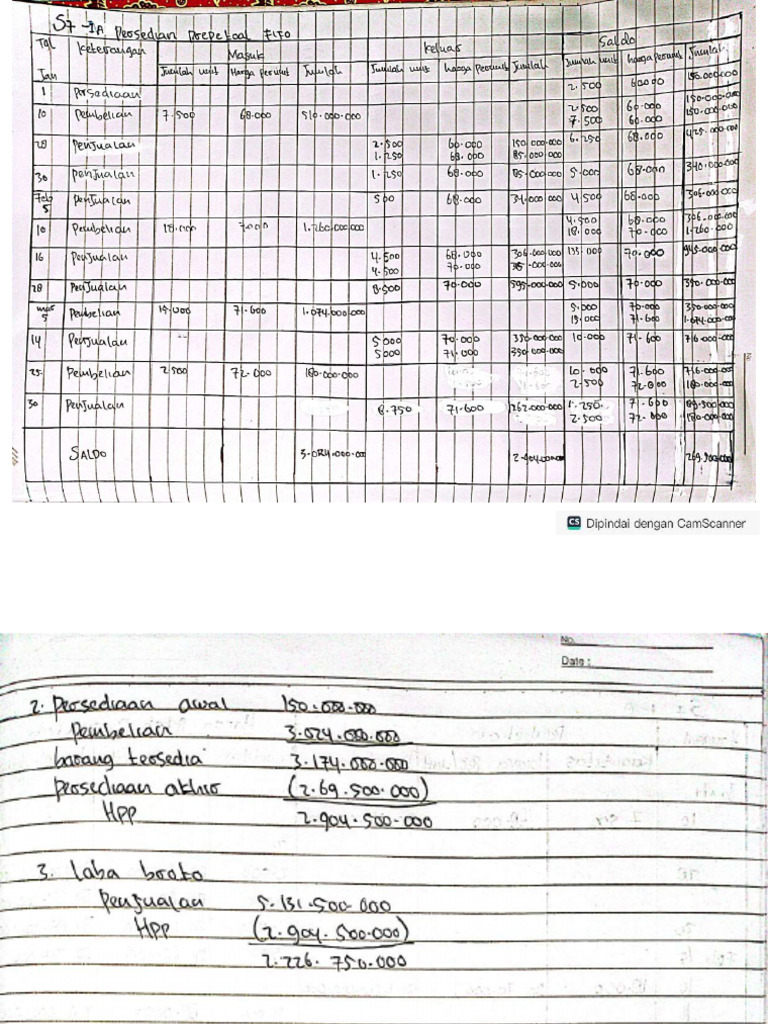 S7-1A Persedian Prepetoal FIFO
Tgl Keterangan Masuk Keluar Saldo
Jan Jumlah unit Harga perunit Jumlah Jumlah unit harga perunit Jumlah Jumlah unit harga perunit Jumlah
1 Persediaan 2.500 60.000 150.000.000
10 Pembelian 7.500 68.000 510.000.000 2.500 60.000 150.000.000
7.500 60.000 150.000.000
20 Penjualan 2.500 60.000 150.000.000 6.250 68.000 425.000.000
1.250 68.000 85.000.000
30 Penjualan 1.250 68.000 85.000.000 5.000 68.000 340.000.000
Feb 5 Penjualan 500 68.000 34.000.000 4.500 68.000 306.000.000
10 Pembelian 18.000 7000 1.260.000.000 4.500 68.000 306.000.000
18.000 70.000 1.260.000
16 Penjualan 4.500 68.000 306.000.000 135.000 70.000 945.000.000
4.500 70.000
28 Penjualan 8.500 70.000 595.000.000 5.000 70.000 350.000.000
Mar 5 Pembelian 15.000 71.600 1.074.000.000 5.000 70.000 350.000.000
15.000 71.600 1.074.000.000
14 Penjualan 5.000 70.000 350.000.000 10.000 71.600 716.000.000
5000 71.000 350.000.000
25 Pembelian 2.500 72.000 180.000.000 10.000 71.600 716.000.000
2.500 72.000 180.000.000
30 Penjualan 8.750 71.600 1.250. 71.600 89.500.000
2.500 72.000 180.000.000
SALDO 3.024.000.00 2.904.00.000 269.500.000
CS Dipindai dengan CamScanner
No.
Date :
2. Persediaan awal 150.000.000
Pembelian 3.024.000.000
barang tersedia 3.174.000.000
persediaan akhir (2.69.500.000)
HPP 2.904.500.000
3. laba broto
Penjualan 5.131.500.000
HPP (2.904.500.000)
2.226.750.000